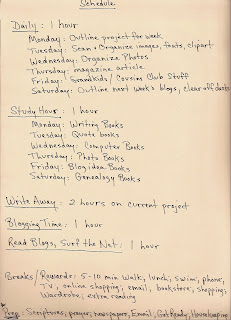 Schedule
Daily: 1 hour
Monday: Outline project for week
Tuesday: Scan & Organize images, fonts, clipart
Wednesday: Organize Photos
Thursday: magazine article
Friday: Grandkids / Cousins Club Stuff
Saturday: Outline next week's blogs, clear off desks
Study Hour: 1 hour
Monday: Writing Books
Tuesday: Quote books
Wednesday: Computer Books
Thursday: Photo Books
Friday: Blog idea Books
Saturday: Genealogy Books
Write Away: 2 hours on current project
Blogging Time: 1 hour
Read Blogs, Surf the Net: 1 hour
Breaks/Rewards: 5-10 min walk, lunch, swim, phone,
TV, online shopping, email, bookstore, shopping,
Wardrobe, extra reading
Prep: Scriptures, prayer, newspapers, Email, Get Ready, Housekeeping